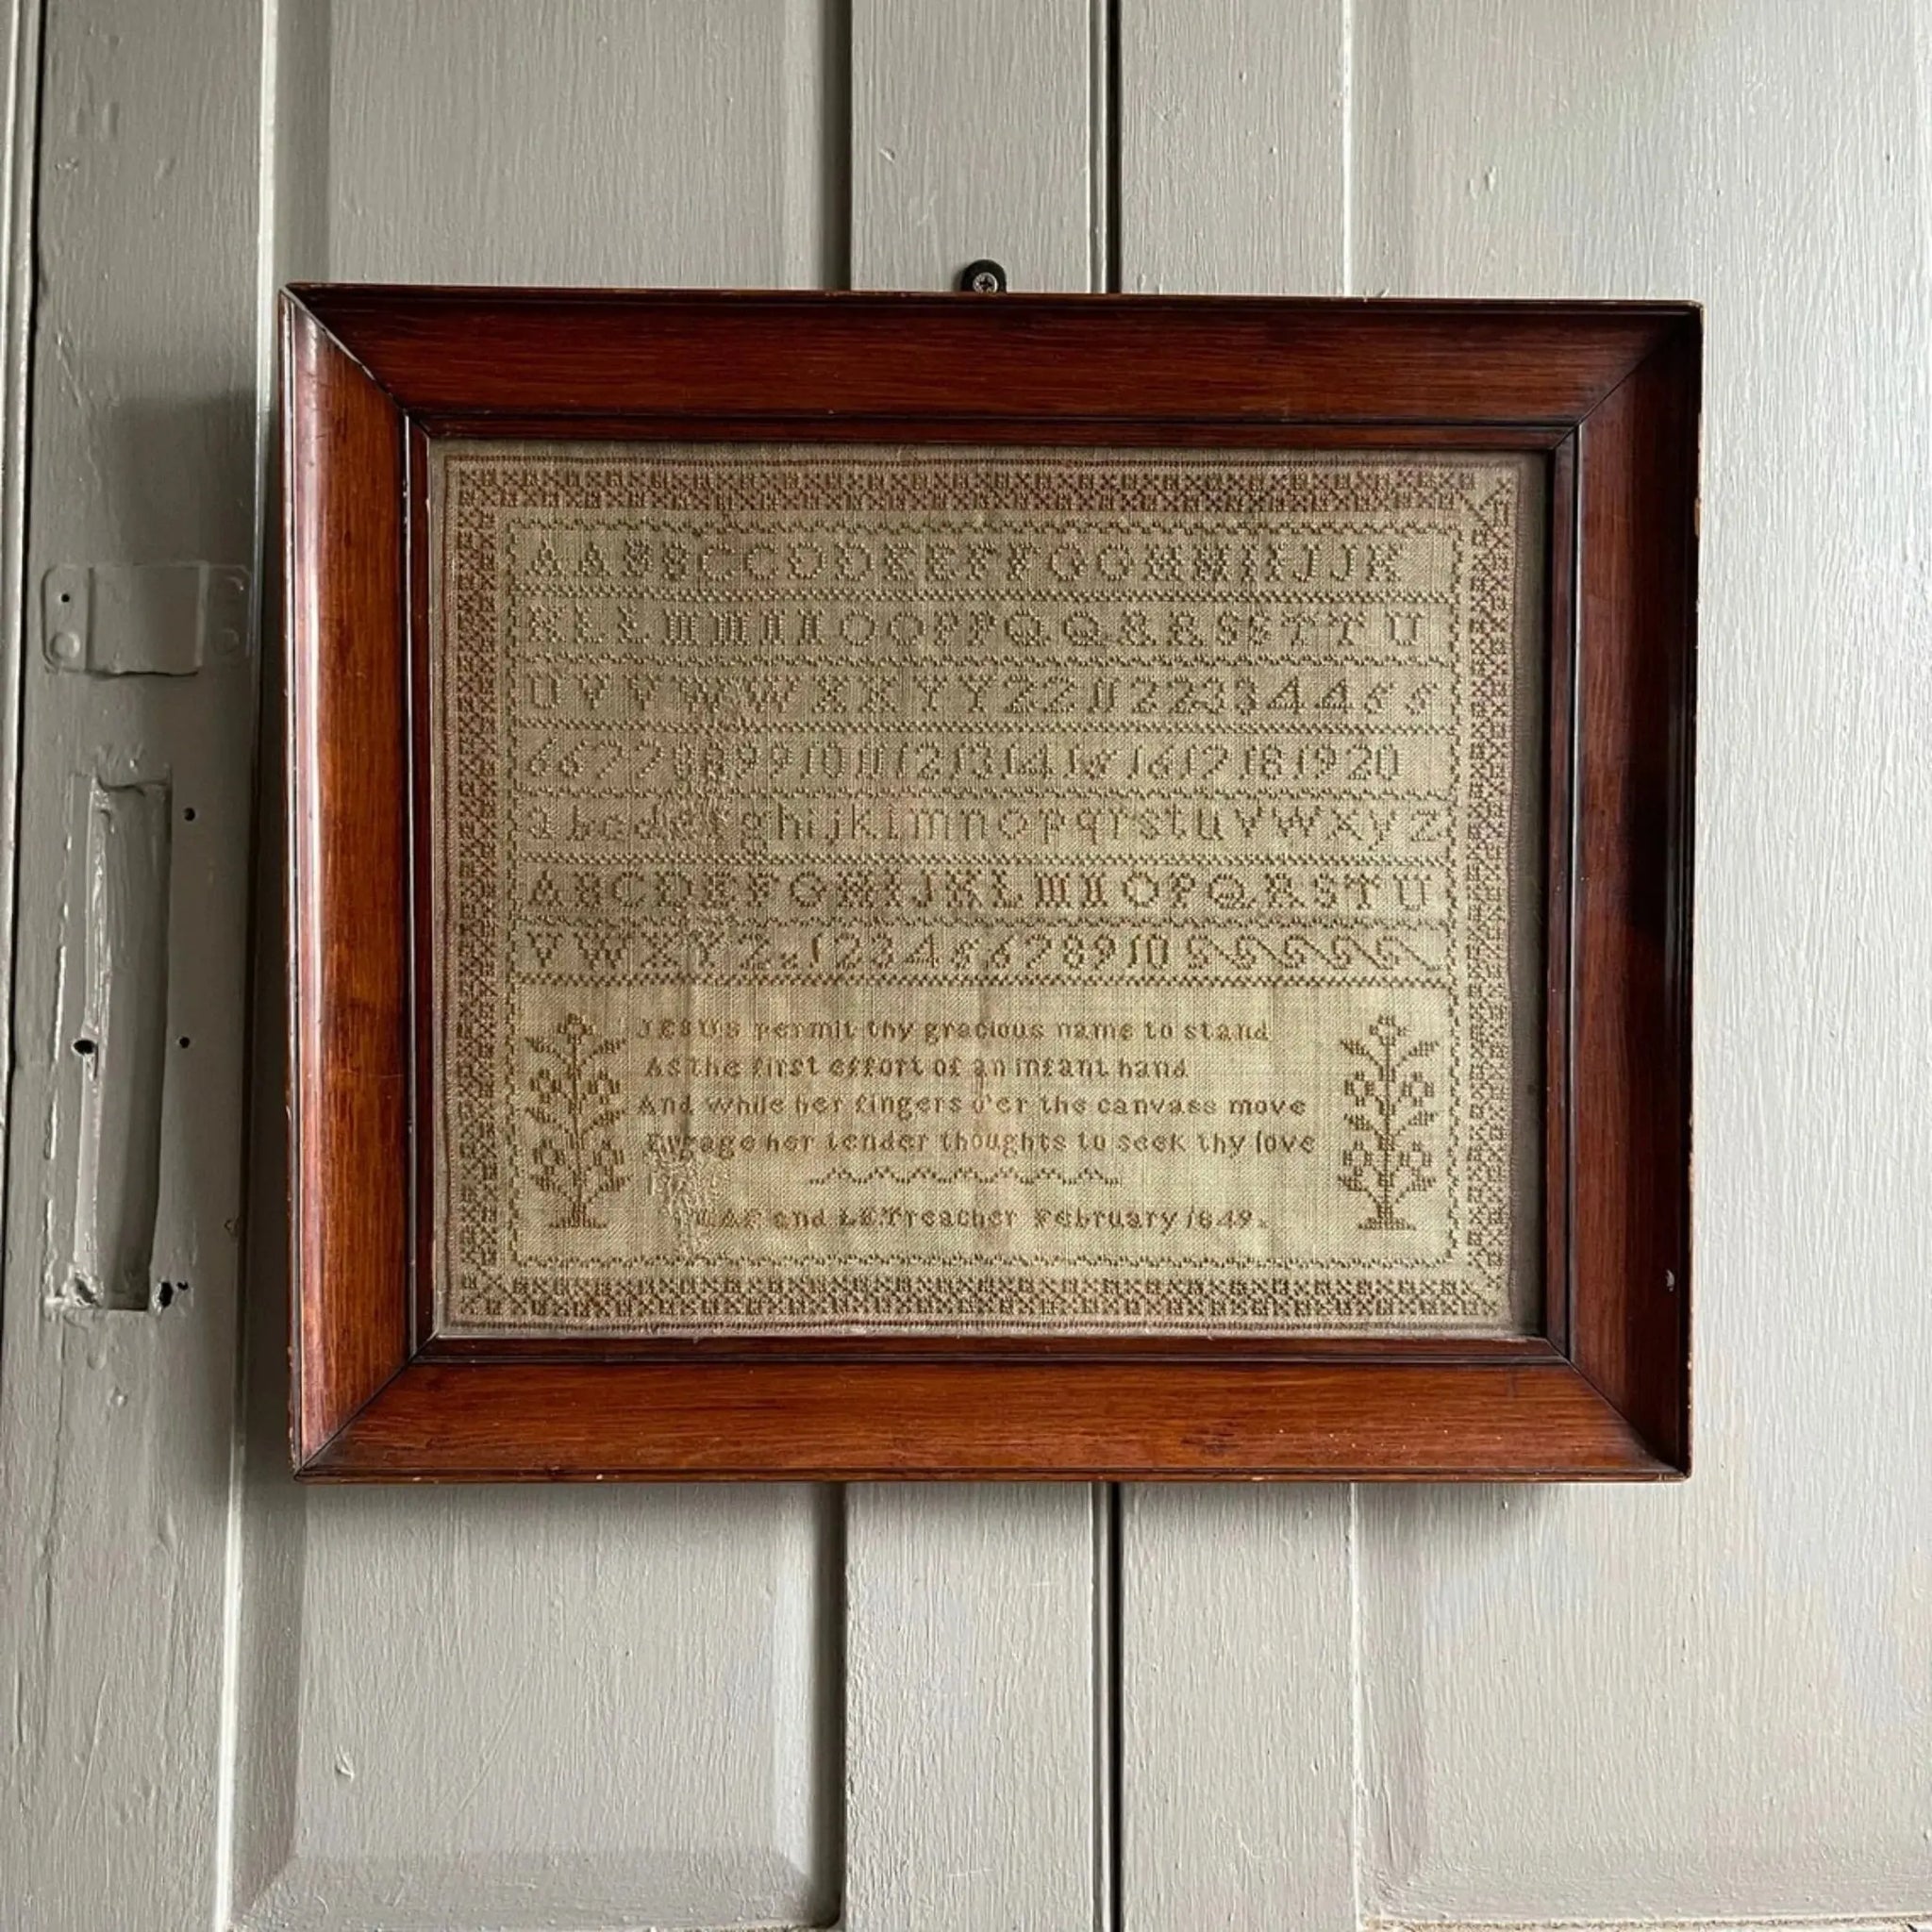 AABBCCDDEEFFGGHHIIJJK
KLLMMNNOOPPQQRRSSTTU
UVVWWXXYYZZ1122334455
667788991011121314151617181920
abcdefghijklmnopqrstuvwxyz
ABCDEFGHIJKLMNOPQRSTU
VWXYZ&12345678910
JESUS permit thy gracious name to stand
As the first effort of an infant hand
And while her fingers o'er the canvass move
Engage her tender thoughts to seek thy love
and L E Treacher February 1849.